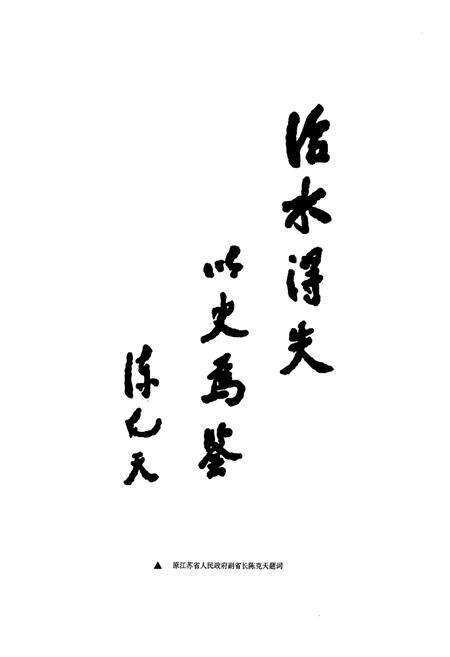 治水得失
以史为鉴
陈克天
▲ 原江苏省人民政府副省长陈克天题词